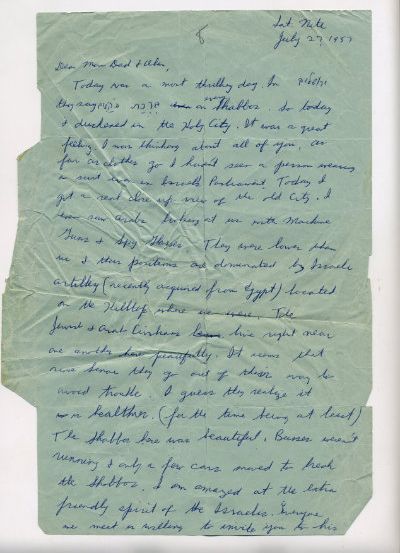 Sat. Nite
July 27, 1957
8
Dear Mom Dad & Alan,
Today was a most thrilling day. In
they say on Shabbos. So today
I duchened in the Holy City. It was a great
feeling. I was thinking about all of you, as
far as clothes go I hadn't seen a person wearing
a suit even in Israeli Parliament. Today I
got a real close up view of the old City. I
even saw Arabs looking at us with Machine
Guns & Spy Glasses. They were lower than
us & their positions are dominated by Israeli
artillery (recently acquired from Egypt) located
on the Hilltop where we were. The
Jewish & Arab Civilians live right near
one another peacefully. It seems that
each go out of their way to
avoid trouble. I guess they realize it
is healthier (for the time being at least)
The Shabbos here was beautiful. Busses weren't
running & only a few cars moved to break
the Shabbos. I am amazed at the extra
friendly spirit of the Israelis. Everyone
we meet is willing to invite you to his